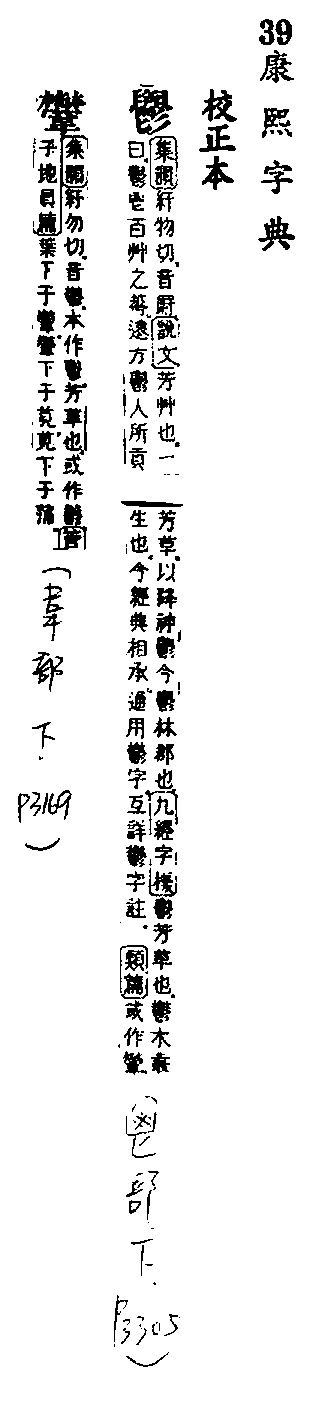 39
康熙字典
校正本
鬱 集韻 紆物切音尉 說文 芳艸也一
曰鬱鬯百艸之華遠方鬱人所貢
芳草以降神鬱今鬱林郡也 九經字樣 鬱芳草也鬱木叢
生也今經典相承通用鬱字互詳鬱字註。 類篇 或作
集韻 紆勿切音鬱本作鬱芳草也或作鬱 管
子地員篇 葉下于下于莧莧下于蒲
(韋部下.
P3169)
鬯部下.
P3305)